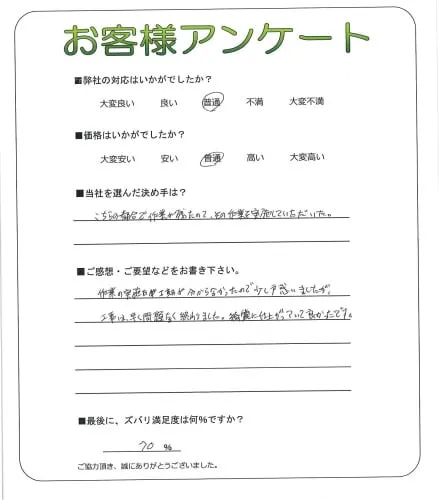 お客様アンケート
■弊社の対応はいかがでしたか？
大変良い 良い 普通 不満 大変不満
■価格はいかがでしたか？
大変安い 安い 普通 高い 大変高い
■当社を選んだ決め手は？
こちらの都合で作業が残たので、その作業を実施していただいた。
■ご感想・ご要望などをお書き下さい。
作業の実施日や工程が分からなかったので少し戸惑いましたが、
工事は、早く問題なく終わりました。綺麗に仕上がっていて良かたです。
■最後に、ズバリ満足度は何%ですか？
70 %
ご協力頂き、誠にありがとうございました。